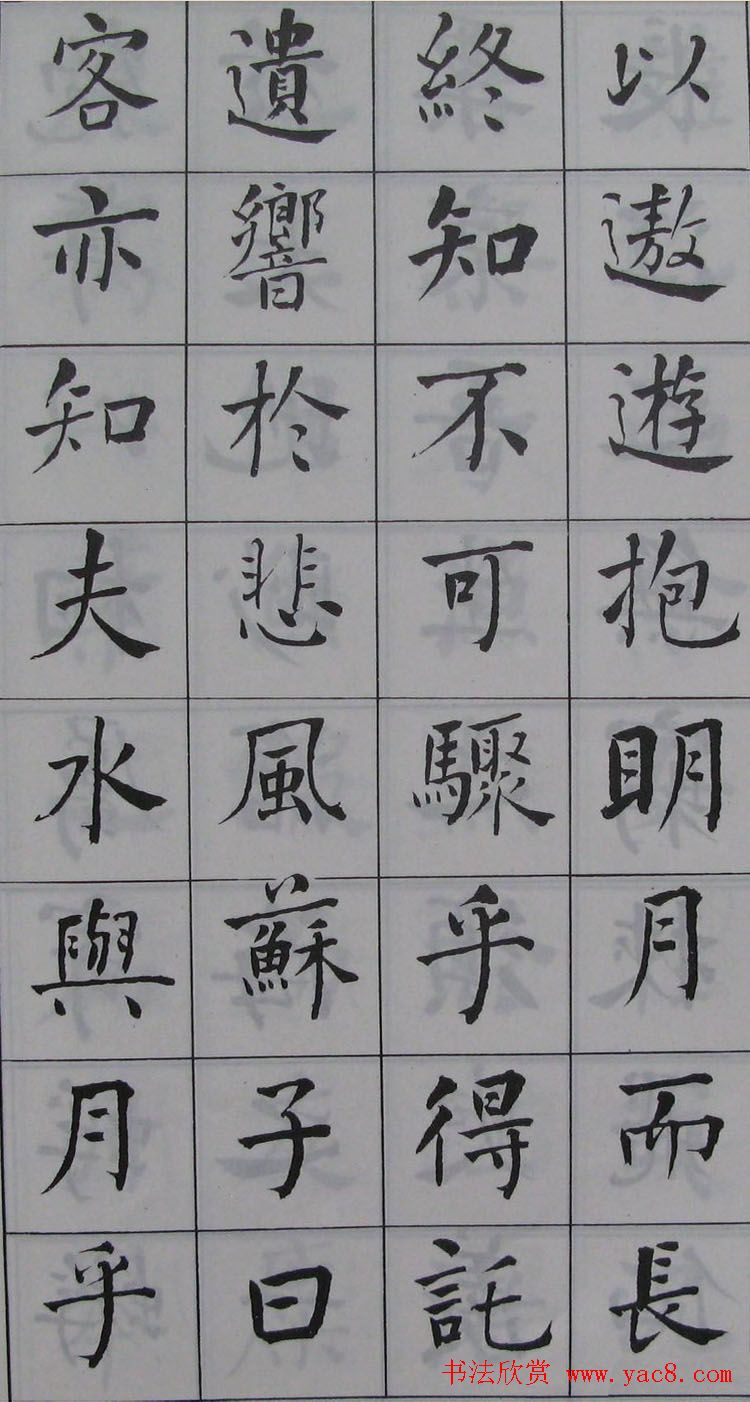 以遨遊抱明月而長
終知不可驟乎得託
遺響於悲風蘇子曰
客亦知夫水與月乎
书法欣赏 www.yac8.com